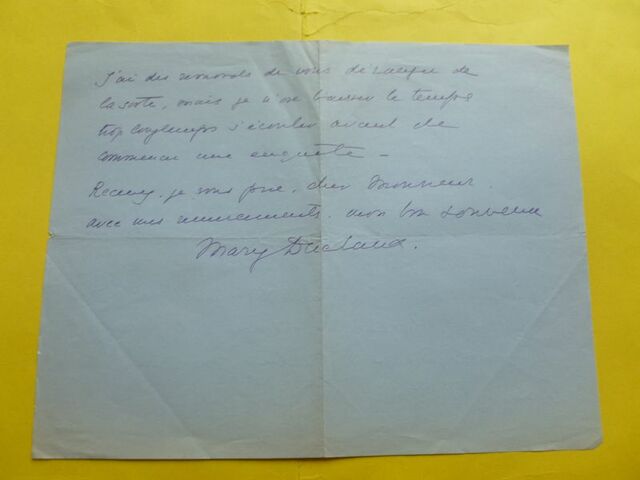 J'ai des remords de vous déranger de
la sorte, mais je n'ose laisser le temps
trop longtemps s'écouler avant de
commencer une enquête —
Recevez, je vous prie, cher Monsieur.
avec mes remerciements. mon bon souvenir
Mary Duclaux.